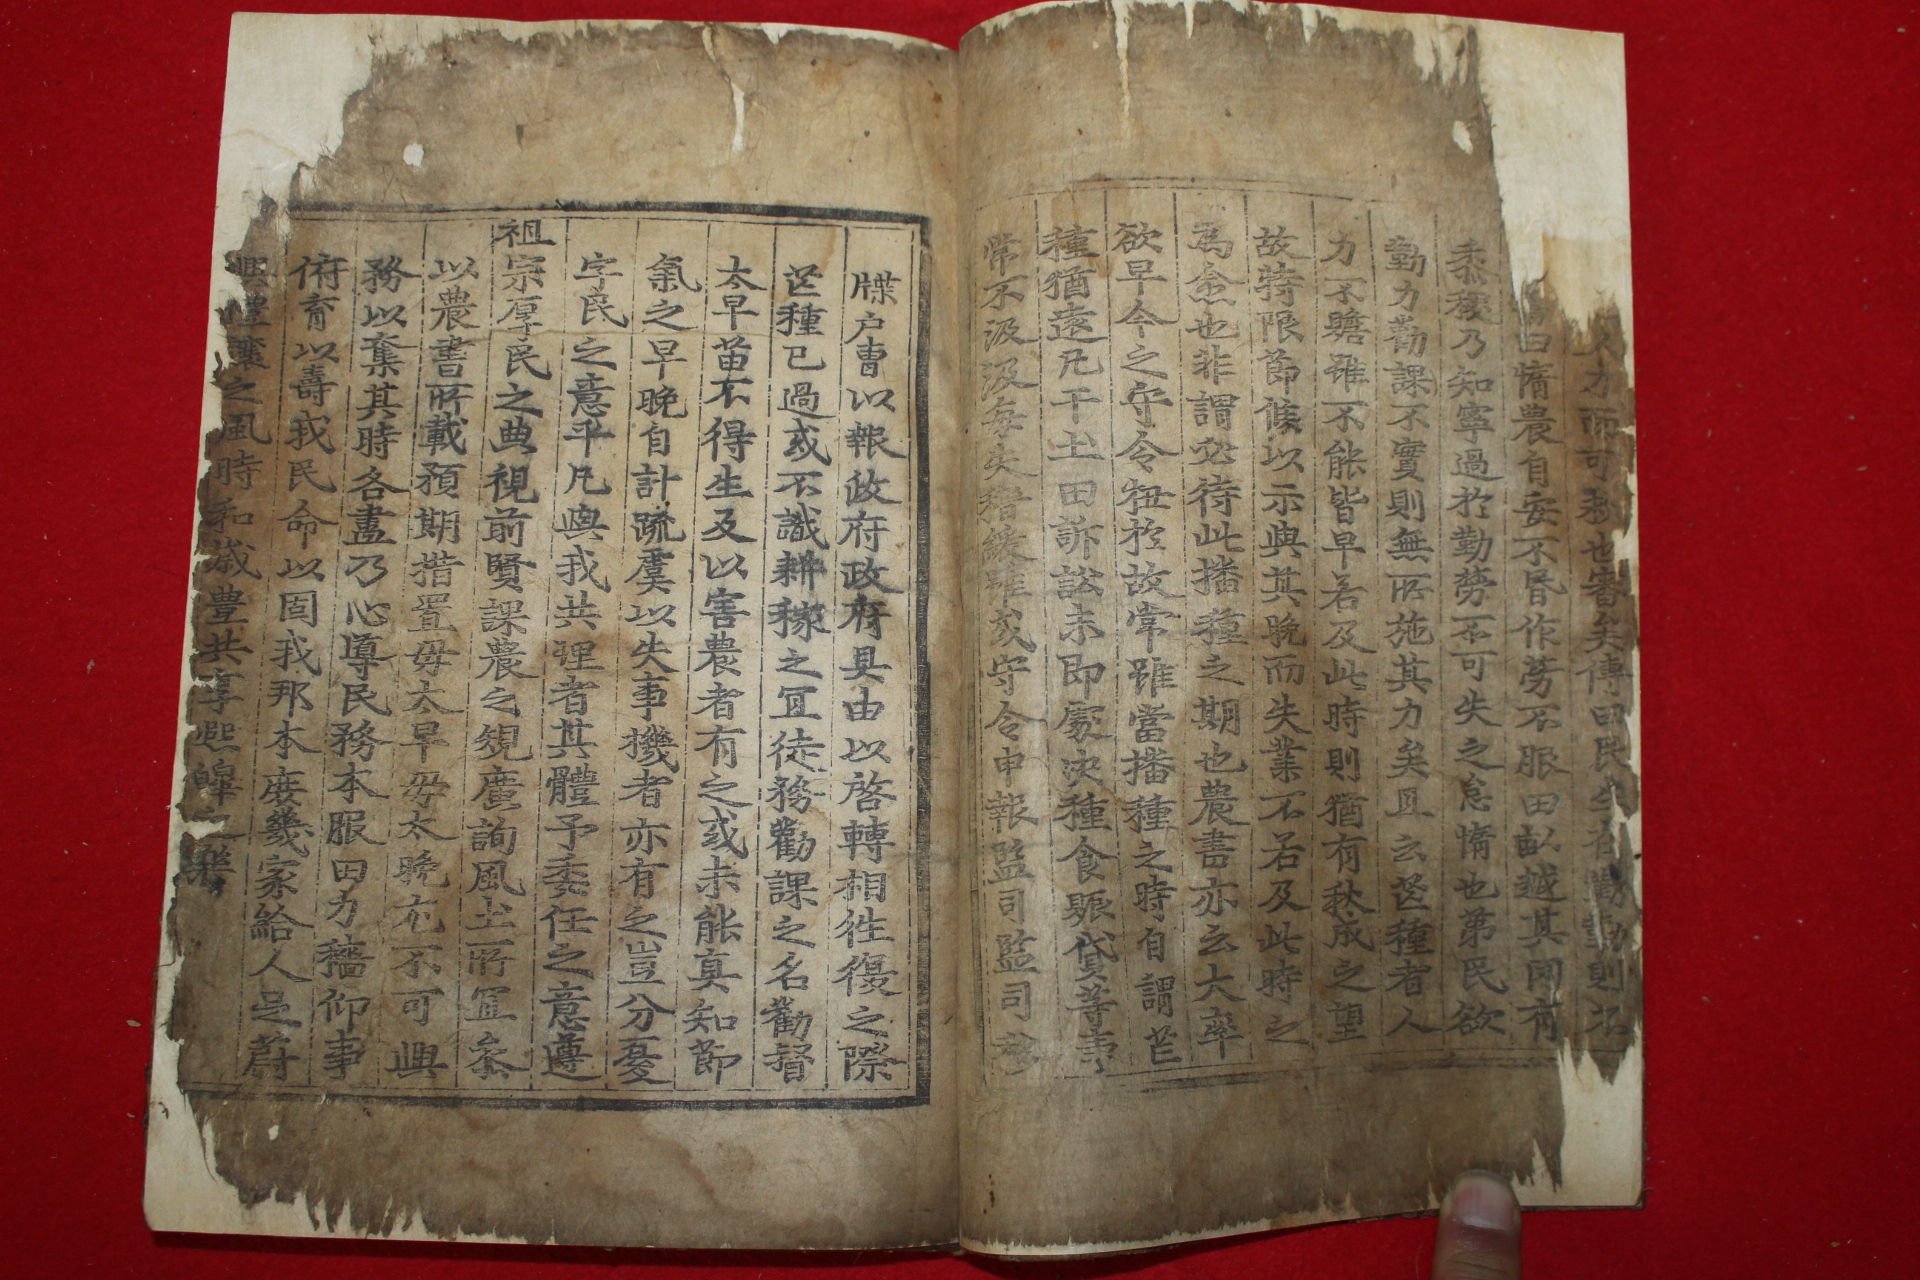 人力而可救也審矣傳曰民生在勤勤則不
曰惰農自安不昏作勞不服田畝越其罔有
黍稷乃知寧過於勤勞不可失之怠惰也第民欲
勤力勸課不實則無所施其力矣且云芒種者人
力不贍雖不能皆早若及此時則猶有秋成之望
故特限節候以示與其晩而失業不若及此時之
爲愈也非謂必待此播種之期也農書亦云大率
欲早今之守令狃於故常雖當播種之時自謂芒
種猶遠凡干土田訴訟未即處決種食賑貸等事
常不汲汲每失稽緩雖或守令申報監司監司移
牒户曹以報政府政府具由以啓轉相徃復之際
芒種已過或不識耕稼之冝徒務勸課之名勸督
太早苗不得生及以害農者有之或未能真知節
氣之早晩自計疏虞以失事機者亦有之豈分憂
字民之意乎凡與我共理者其體予委任之意遵
祖宗厚民之典視前賢課農之規廣詢風土所冝叅
以農書所載預期措置毋太早毋太晩尤不可興
務以奪其時各盡乃心導民務本服田力穡仰事
俯育以壽我民命以固我邦本庶幾家給人足蔚
興禮讓之風時和歲豊共享熙皞之樂